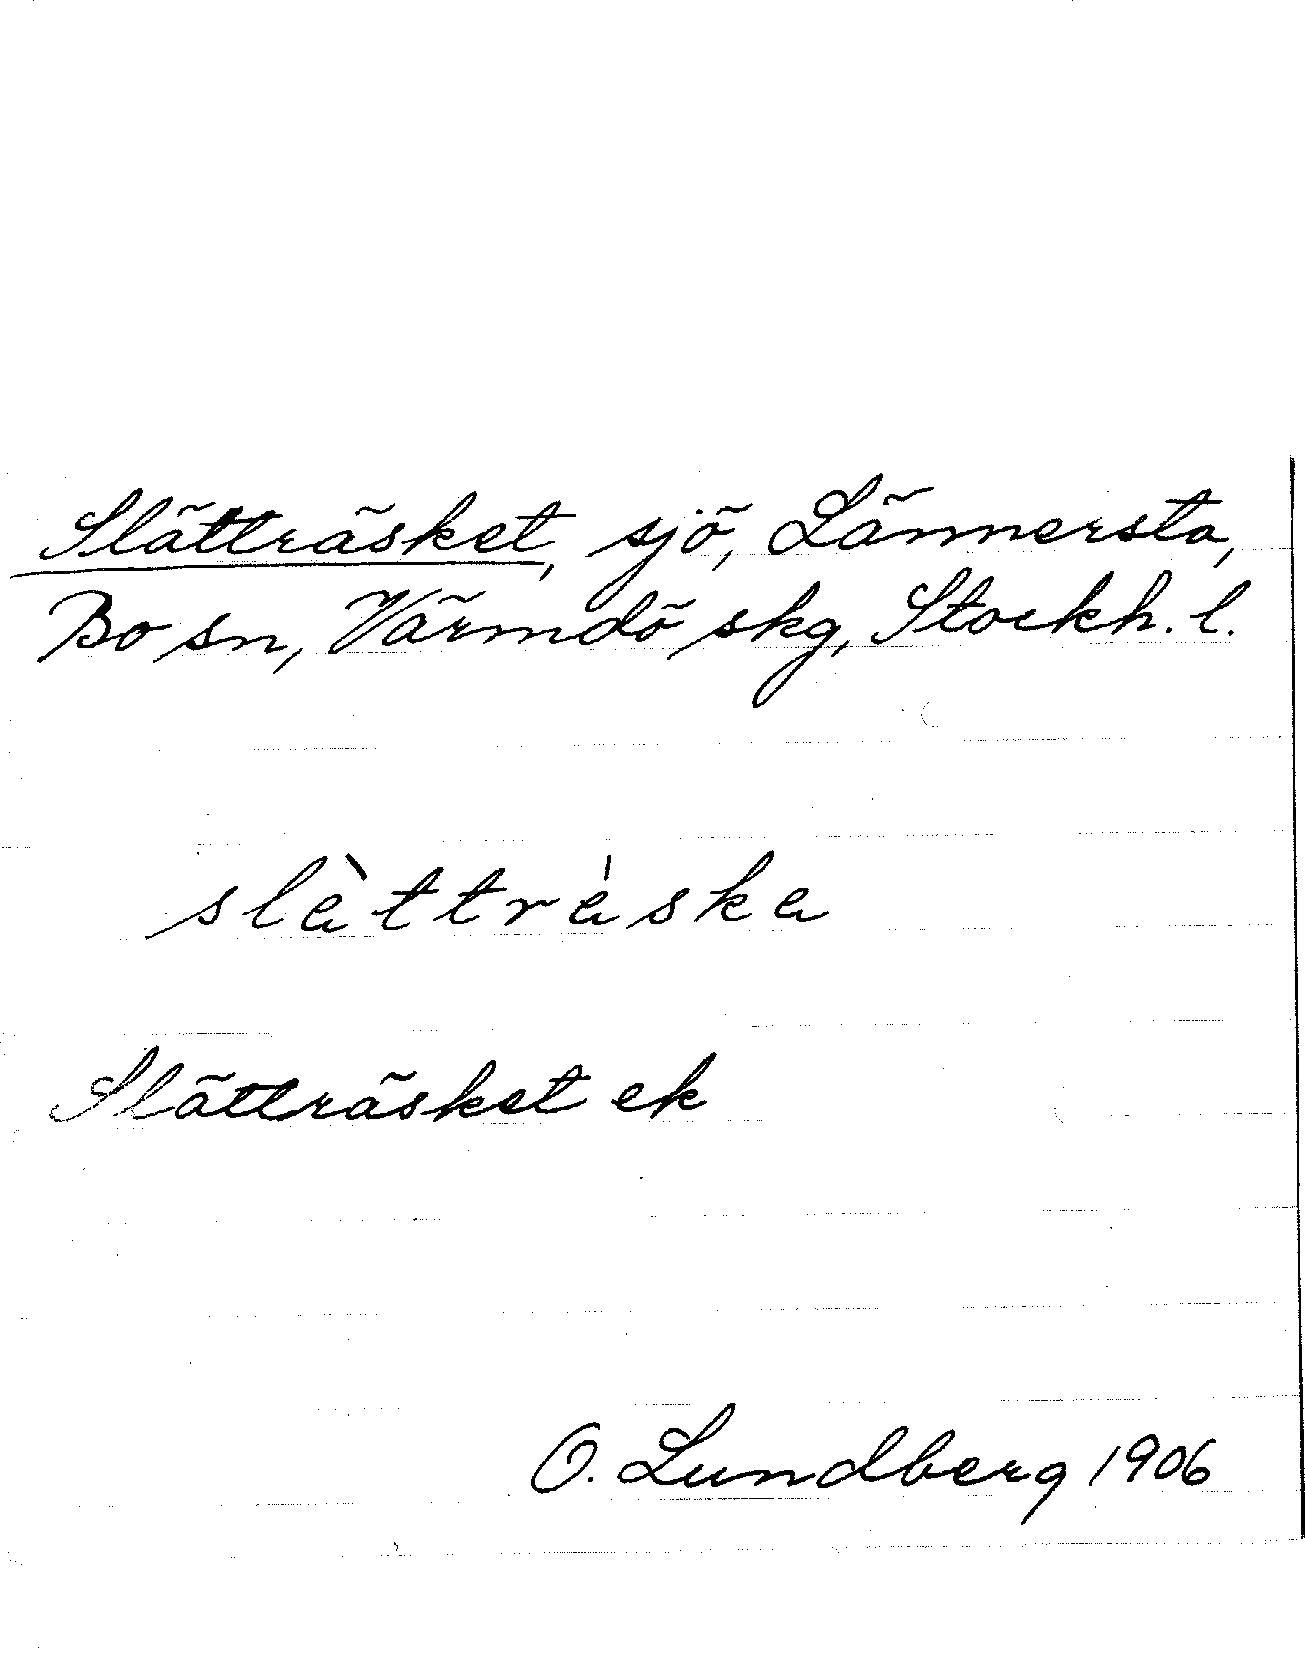 Slätträsket, sjö, Lännersta,
Bo sn, Värmdö skg, Stockh. l.
slèttréske
Slätträsket ek
O. Lundberg 1906